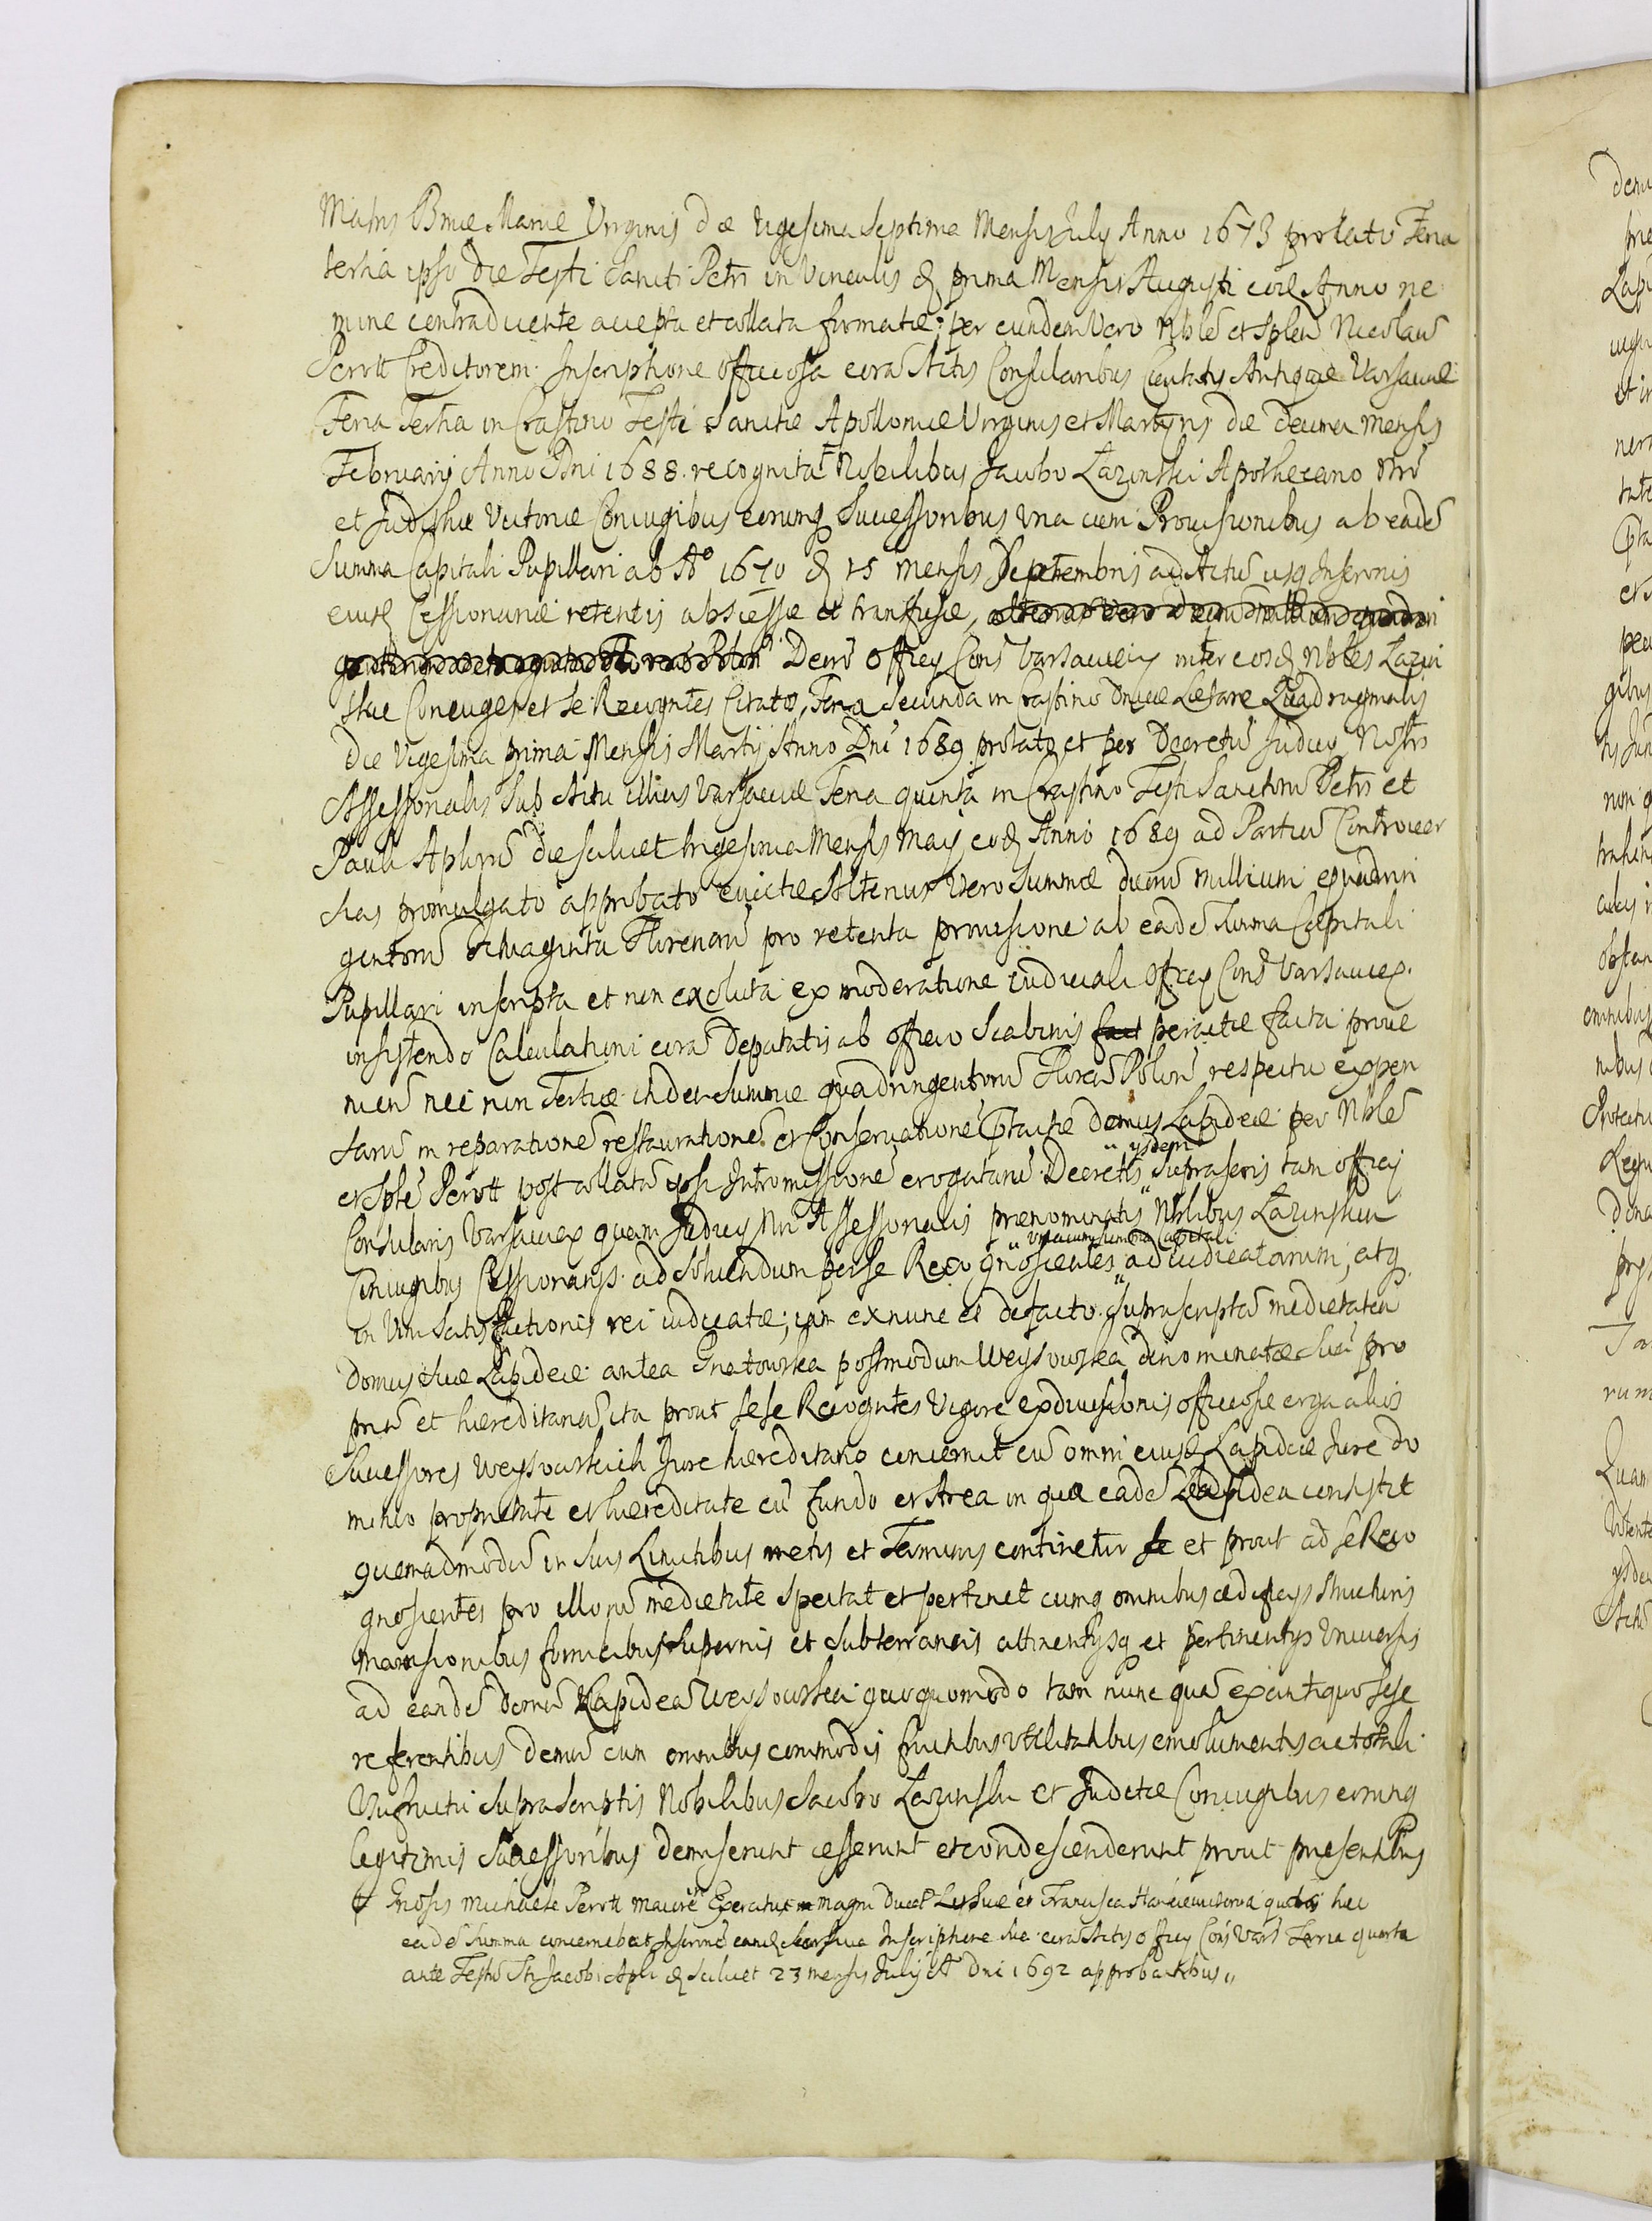 Matris Bmae Mariae Virginis die vigesima septima Mensis July Anno 1673 prolato Feria
tertia ipso die Festi Sancti Petri in Vinculis d prima Mensis Augusti eod Anno ne
mine contradicente accepta et collata formatae; per eundem Vero Nblē et Splem Nicolaū
Perott Creditorem Inscriptione officiosa corā Actis Consularibus Civitatis Antiquae Varsaviae
Feria Tertia in Crastino Festi Sanctae Apolloniae Virginis et Martyris die decima Mensis
February Anno Dni 1688 recognita Nobilibus Jacobo Łazinski Apothecario Nrō
et Judithae Victoriae Coniugibus eorumq Successoribus una cum Provisionibus ab eadē
Summa Capitali Pupillari ab Aº 1670 d 15 mensis Septembris ad Actū usq Inscronis
eiusd Cessionariae retentis abscessae et transfusae,
Decrō Officy Cons Varsavien inter eosd Nbles Lazin
skie Coniuges et se Recogntes Citato, Feria Secunda in Crastino Dnicae Laetare Quadragmalis
die Vigesima prima Mensis Martij Anno Dni 1689 prolato et per Decretū Judicy Nostri
Assessorialis Sub Actu illius Varsaviae Feria quinta in Crastino Festi Sanctorū Petri et
Pauli Aplorū die scilicet trigesima Mensis Maij eod Anno 1689 ad Partiū Controver
sias promulgato approbato evictae Alterius Vero Summae duorū millium quadrin
gentorū octuaginta Florenorū pro retenta provisione ab eadē Summa Capitali
Pupillari inscripta et non exoluta ex moderatione iudiciali Officy Cons Varsavien
insistendo Calculationi corā Deputatis ab officio Scabinis fact peractae facta prove
nien nec non Tertiae itidem Summae quadringentorū Florenō Polonō respectu expen
sarū in reparationē restaurationē et Conservationē Ptactae domus Lapideae per Nblē
et Splē Perott post collatā ipsi Intromissionē erogatarū Decretis "ysdem" suprascris tam officy
Consularis Varsavien quam Judicy Nri Assessorialis praenominatis Nblibus Łazinskim
Coniugibus Cessionarys ad Solvendum per se Recognoscentes " una cum summa Capitali adiudicatarum; atq
in Vim Satisfactionis rei iudicatae; iam ex nunc et de facto suprascriptā medietatem
domus suae Lapideae antea Gnatowska postmodum Weysowska denominatae Suā pro
priā et haereditariā ita prout sese Recogntes Vigore exdivisionis officiosae erga alios
Successores Weysowskich Jure haereditario concernit cū omni eiusd Lapideae Jure do
minio proprietate et haereditate cū fundo et Area in qua eadē Lapidea consistit
quemadmodū in Suis Limitibus metis et Terminis continetur se et prout ad se Reco
gnoscentes pro illorū medietate spectat et pertinet cumq omnibus aedificys structuris
mansionibus fornicibus Supernis et Subterraneis attinentysq et pertinentys Universis
ad eandē domū Lapideā Weysowska quoquomodo tam nunc quā ex antiquo sese
referentibus demū cum omnibus commodis fructibus utilitatibus emolumentis ac totali
Usufructu suprascriptis Nobilibus Jacobo Łazinski et Judetae Coniugibus eorumq
legitimis Successoribus demiserunt cesserunt et condescenderunt prout presentibus
Gnosis Michaele Perott Maiorē Exercitus Magni Ducat Lithuae et Francisca quos hec
eadē Summa concernebat Inscrinē Inscriptione sua corā Actis officy Cons Vars Feria quarta
ante Festū Sti Jacobi Apli d scilicet 23 mensis July A Dni 1692 approbantibus "